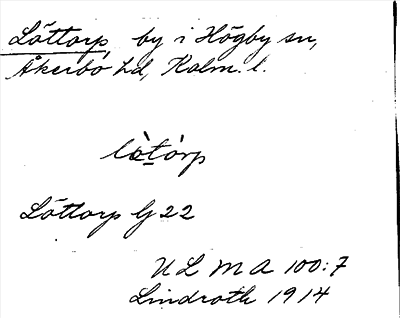 Löttorp, by i Högby sn,
Åkerbo hd, Kalm. l.
lòtórp
Löttorp G 22
ULMA 100:7
Lindroth 1914